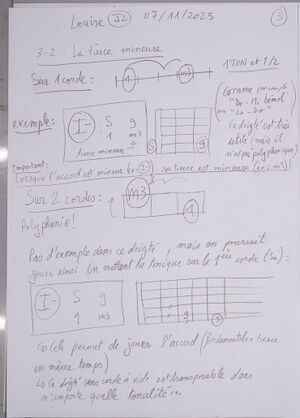 Louise J2 07/11/2025 3
3-2 - La tierce mineure
Sur 1 corde : 1 m3 1 TON et 1/2
exemple : I- 5 9
1 m3
tierce mineure
5 8
(Comme par exemple
"Do - Mi bémol"
ou "La - Do"
Ce doigté est très
utile mais il
n'est pas polyphonique)
Important :
Lorsque l'accord est mineur (I-) sa tierce est mineure (m3)!
Sur 2 cordes : m3
1
Polyphonie !
Pas d'exemple dans ce doigté, mais on pourrait
jouer ainsi en mettant la tonique sur la 1ère corde
I- 5 9
1 m3
Ce permet de jouer l'accord (fondamentale + tierce
en même temps)
Ce doigté sans corde à vide est transposable dans
n'importe quelle tonalité...